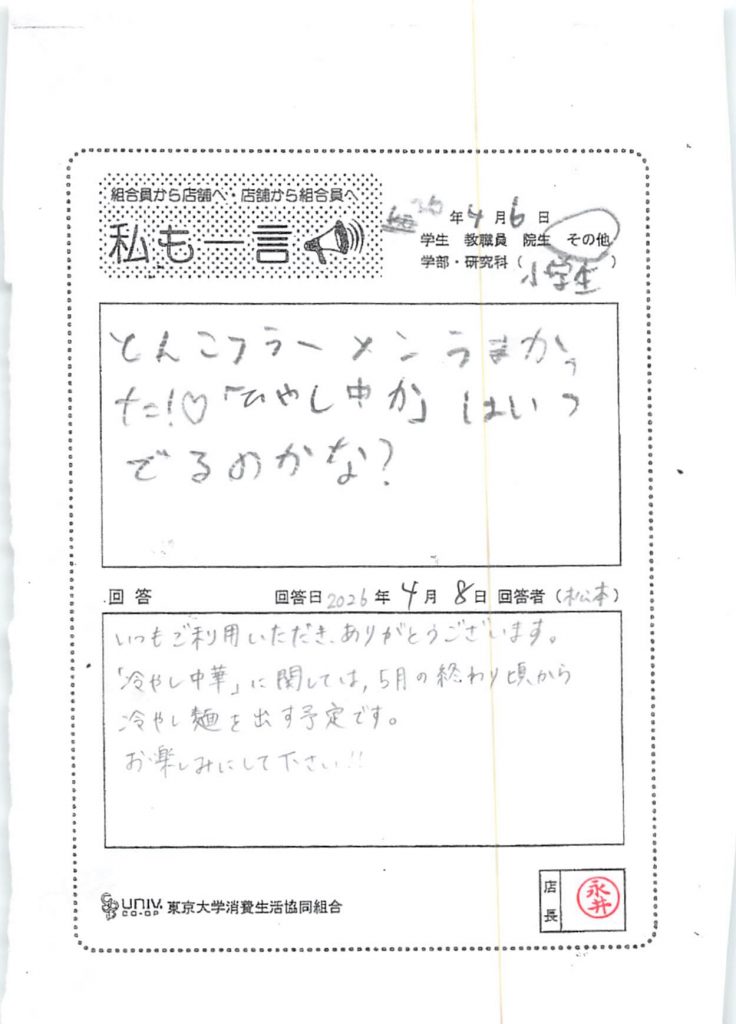 組合員から店舗へ・店舗から組合員へ
私も一言
年4月6日
学生 教職員 院生 その他
学部・研究科(小学生)
とんこつラーメンうまかっ
た!♡「ひやし中か」はいつ
でるのかな?
回答 回答日2026年4月8日 回答者(松本)
いつもご利用いただき、ありがとうございます。
「冷やし中華」に関しては、5月の終わり頃から
冷やし麺を出す予定です。
お楽しみにして下さい!!
UNIV. CO-OP 東京大学消費生活協同組合
店長 永井